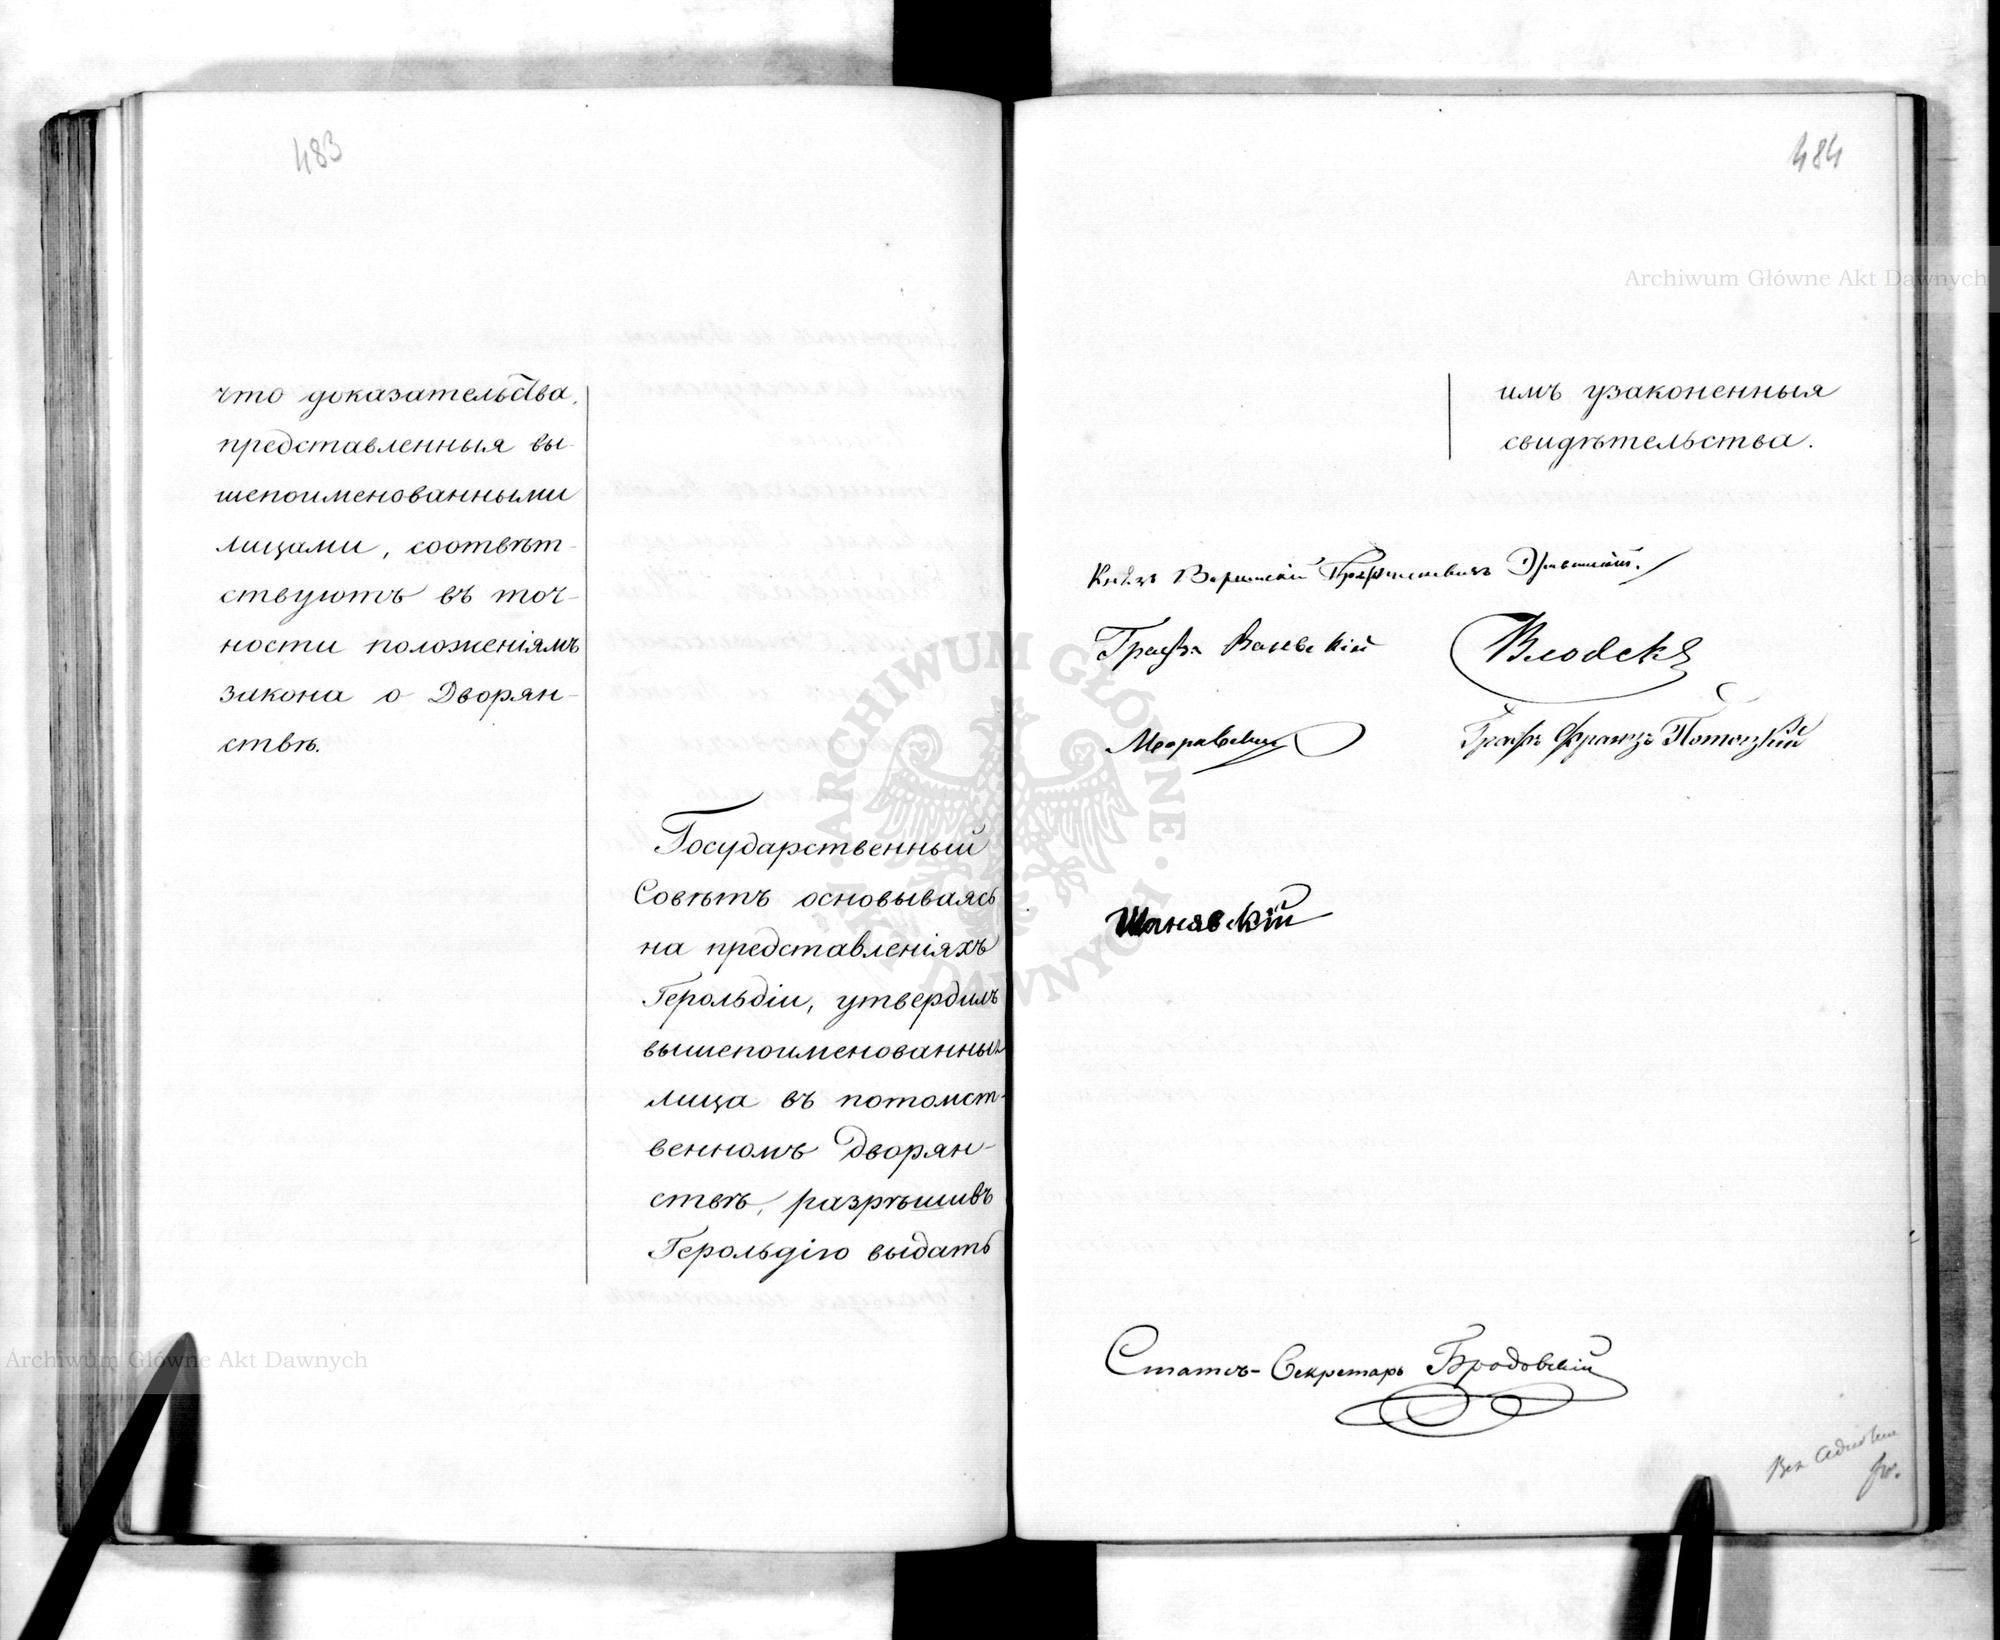 483
что доказательства,
представленныя вы-
шепоименованными
лицами, соотвѣт-
ствуютъ въ точ-
ности положеніямъ
закона о Дворян-
ствѣ.
Государственный
Совѣтъ основываясь
на представленіяхъ
Герольдіи, утвердилъ
вышепоименованныя
лица въ потомст-
венномъ Дворян-
ствѣ, разрѣшивъ
Герольдію выдать
484
имъ узаконенныя
свидѣтельства.
Князь Варшавскій Графъ Паскевичъ Эриванскій.
Графъ
Графъ Францъ Потоцкій
Шанявскій
Статсъ-Секретарь Бродовскій
Archiwum Główne Akt Dawnych
Archiwum Główne Akt Dawnych
ARCHIWUM GŁÓWNE AKT DAWNYCH